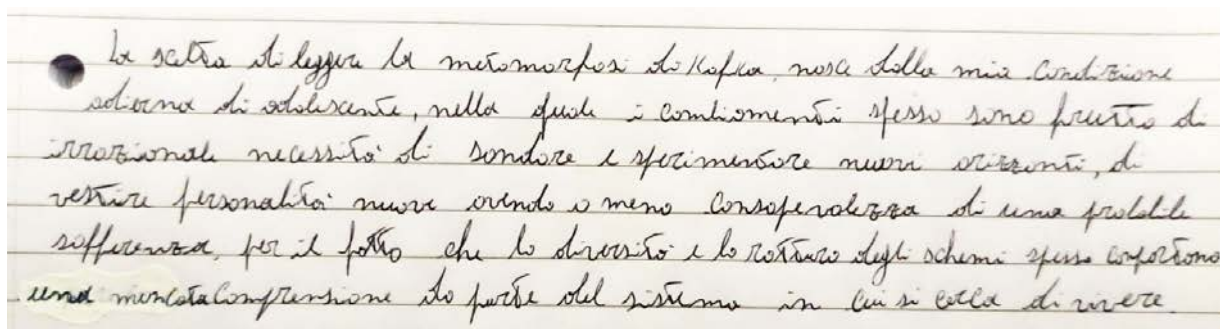 La scelta di leggere la metamorfosi di Kafka, nasce dalla mia condizione
odierna di adolescente, nella quale i cambiamenti spesso sono frutto di
irrazionale necessità di sondare e sperimentare nuovi orizzonti, di
vestire personalità nuove avendo o meno consapevolezza di una probabile
sofferenza, per il fatto che la diversità e la rottura degli schemi spesso comportano
una mancata comprensione da parte del sistema in cui si cerca di vivere.